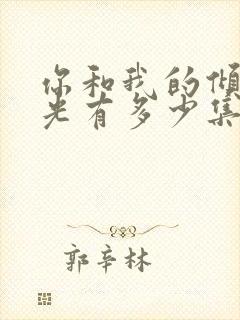 你和我的倾
光有多少集
郭辛林